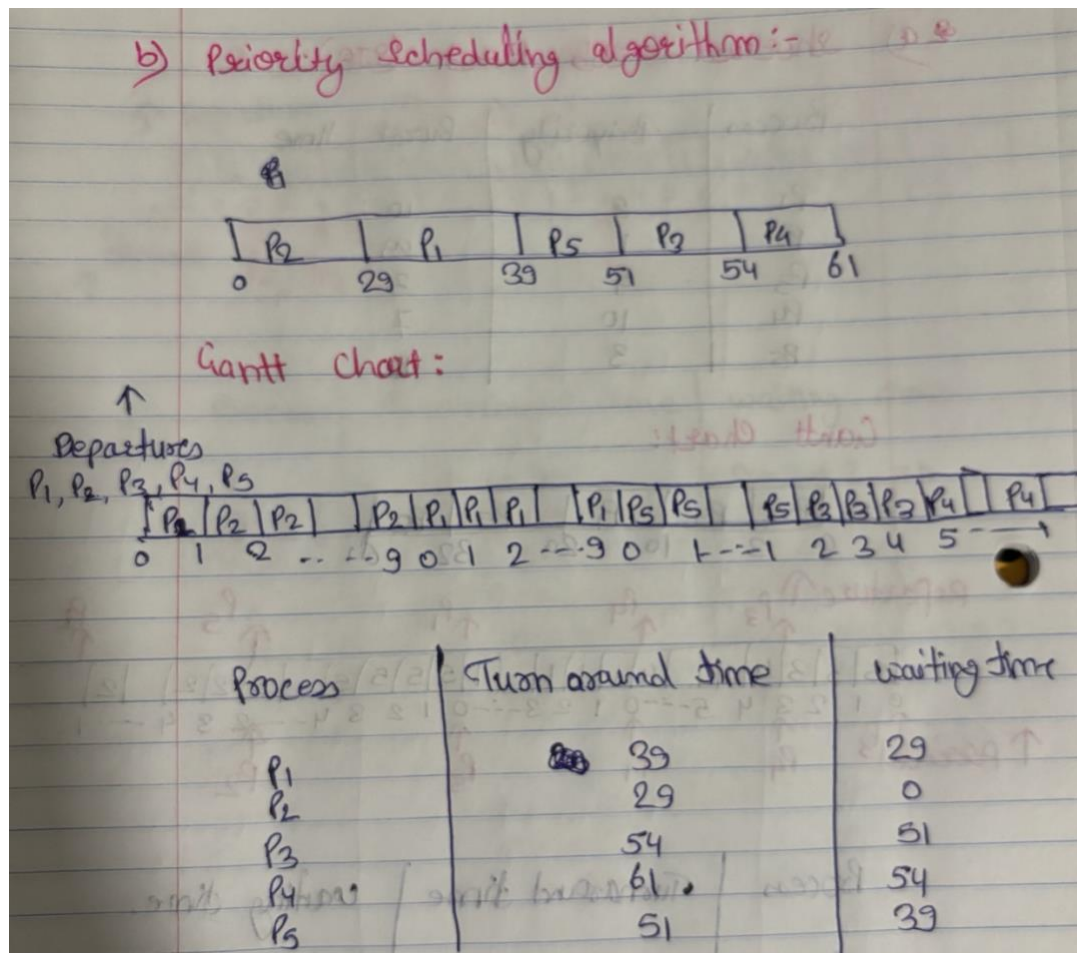 b) Priority scheduling algorithm:-
P2 P1 P5 P3 P4
0 29 39 51 54 61
Gantt Chart:
↑
Departures
P1, P2, P3, P4, P5
P2 P2 P2 P2 P1 P1 P1 P1 P5 P5 P5 P3 P3 P3 P4 P4
0 1 2 .. --9 0 1 2 ---.9 0 1---1 2 3 4 5 --- 1
Process Turn around time waiting time
P1 39 29
P2 29 0
P3 54 51
P4 61. 54
P5 51 39